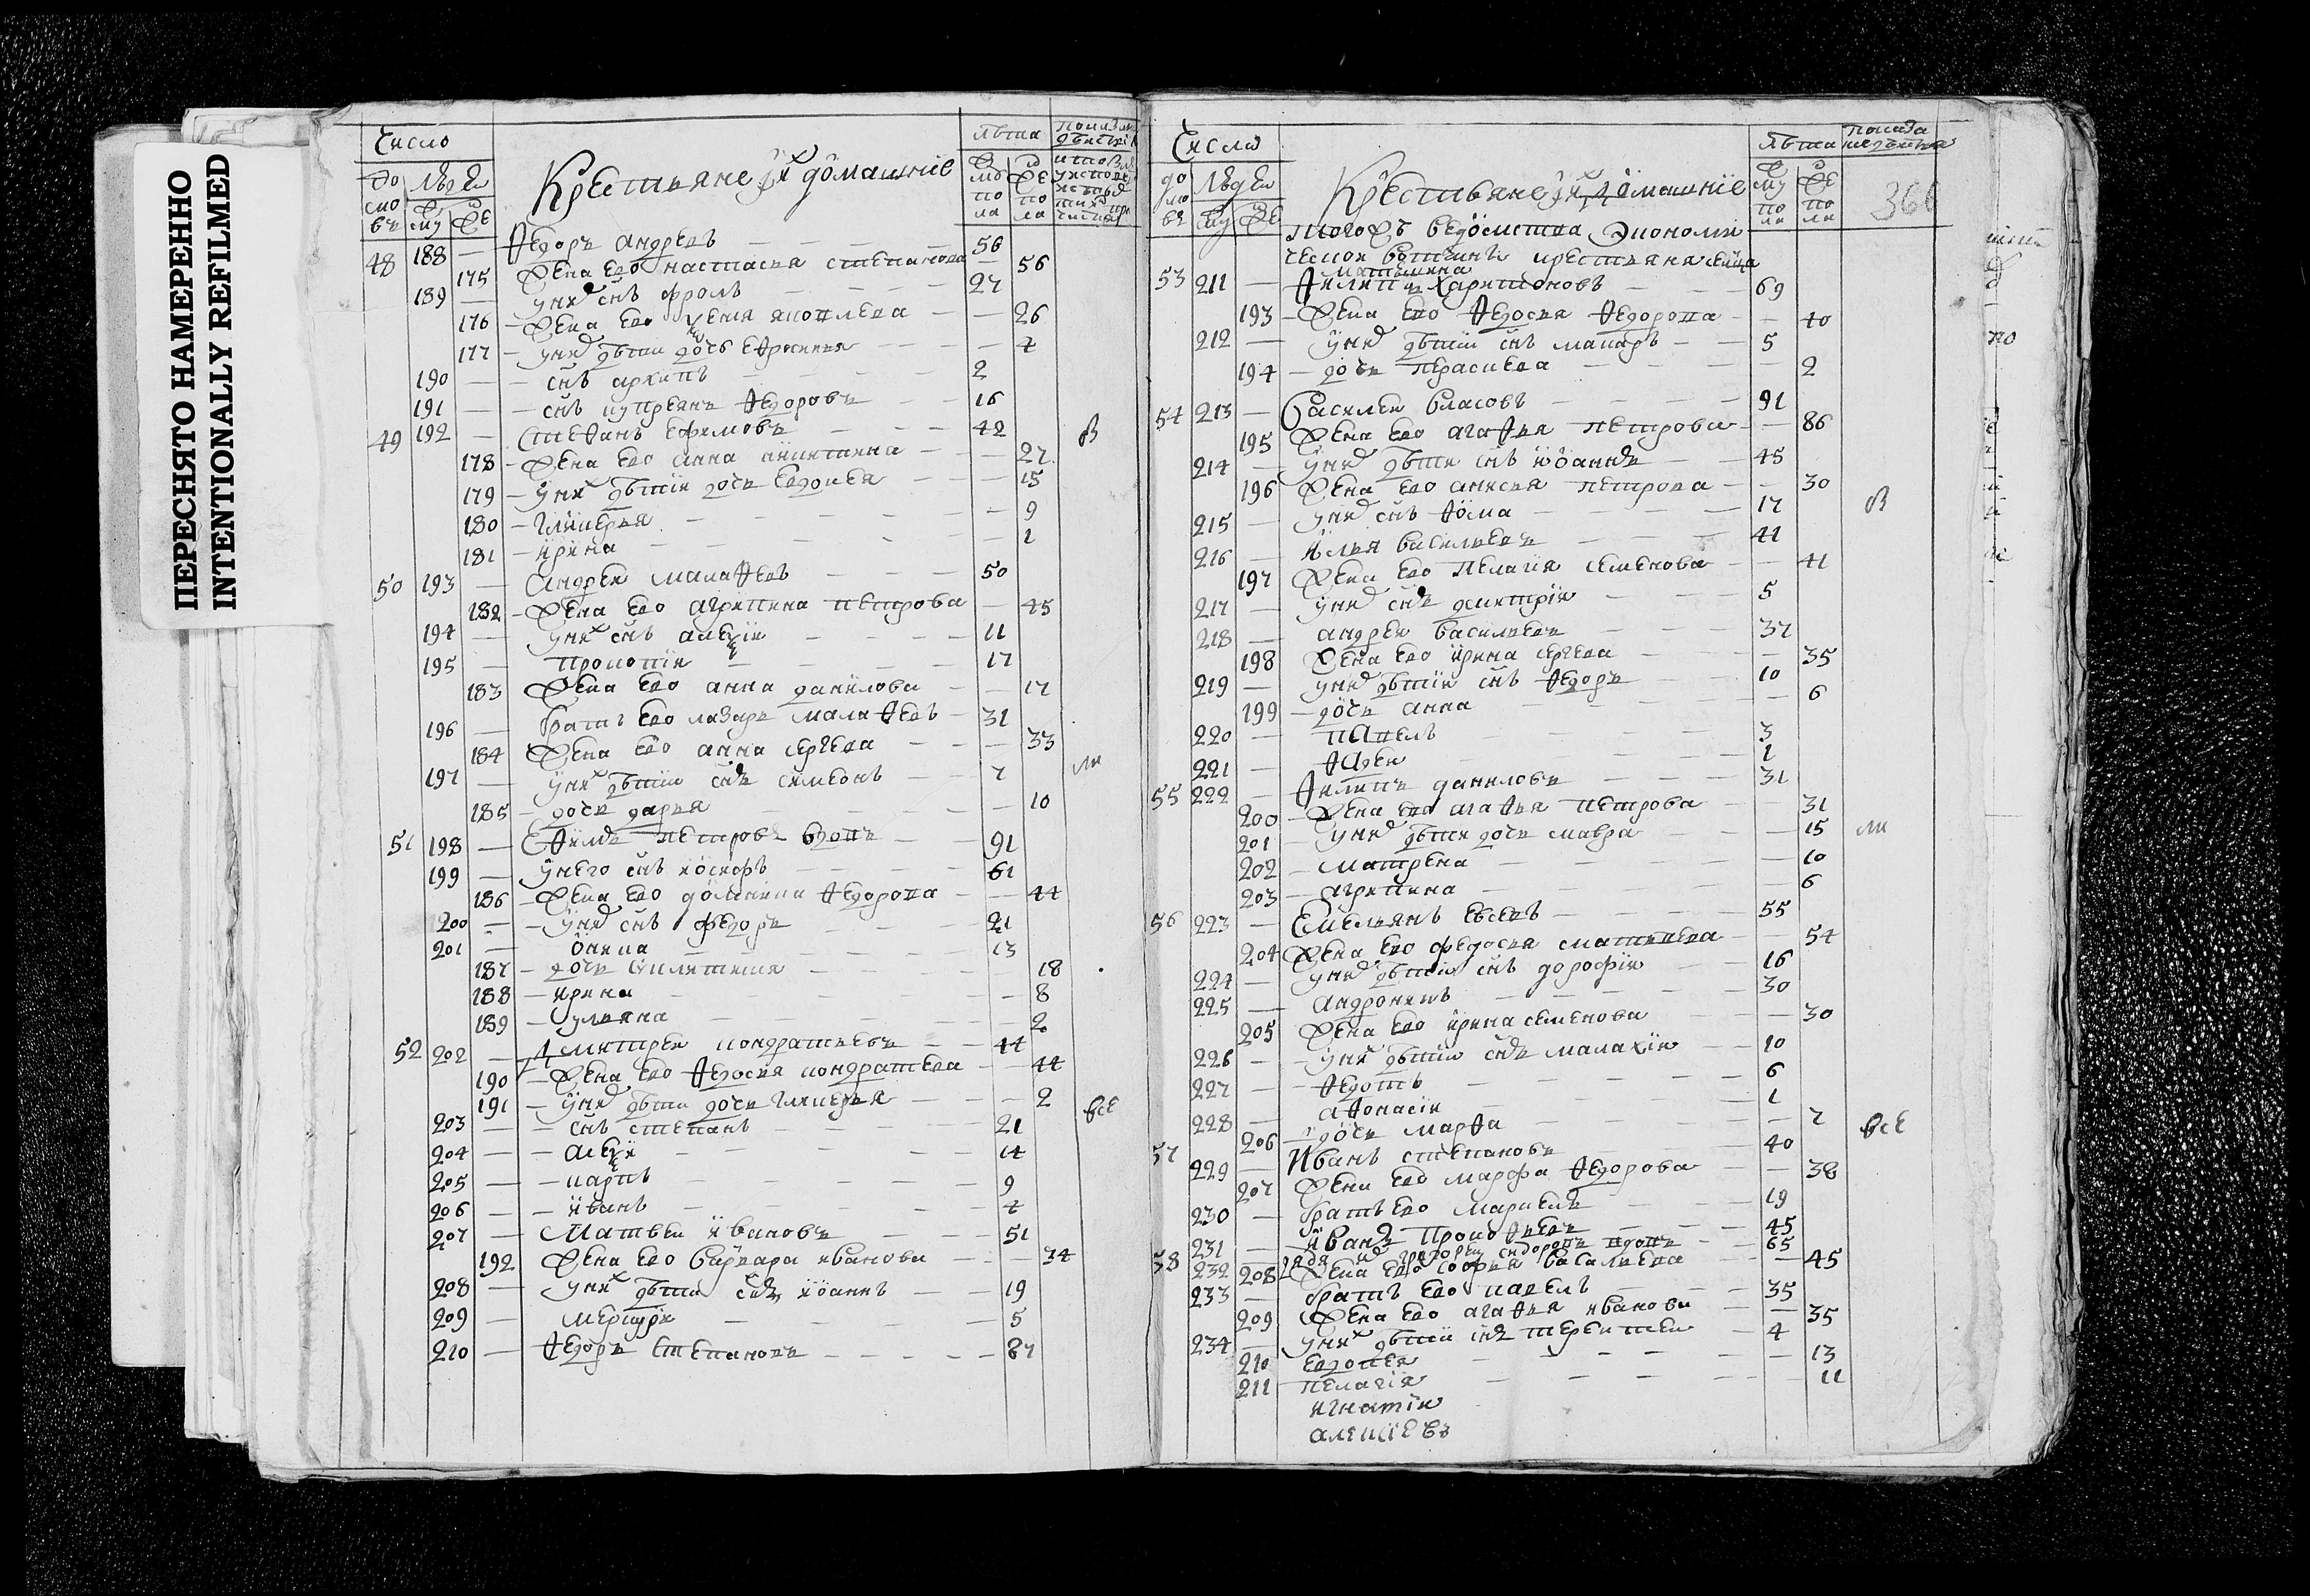 ПЕРЕСНЯТО НАМЕРЕННО
INTENTIONALLY REFILMED
Число
лѣта
До
мо
въ
Людеи
му
же
Крестьяне и ихъ домашніе
му
по
ла
же
по
ла
48 188 — Ѳедоръ андреевъ — 56
175 Жена ево настасья степанова — 56
189 — у нихъ снъ фролъ — 27
176 — Жена ево яковлева — 26
177 — у нихъ дѣти дочь — 4
190 — снъ архипъ — 2
191 — снъ куприянъ Ѳедоровъ — 16
49 192 — Стеѳанъ ефимовъ — 42 в
178 — Жена ево анна никитина — 27
179 — у нихъ дѣтіи дочь Евдокея — 15
180 — гликерья — 9
181 — ирина — 1
50 193 — Андреи малаѲеевъ — 50
182 — Жена ево агрипина петрова — 45
194 — у нихъ снъ алеѯіи — 11
195 — прокопіи — 17
183 Жена ево анна данилова — 17
196 — братъ ево лазарь малаѲеевъ — 31
184 Жена ево анна сергеева — 33
197 — у нихъ дѣтіи снъ симеонъ — 7
185 — дочь дарья — 10
51 198 — Еѳимъ петровъ вдовъ — 91
199 — у него снъ иосифъ — 61
186 — Жена ево домника Ѳедорова — 44
200 — у нихъ снъ федоръ — 21
201 — — 13
187 — дочь — 18
188 — ирина — 8
189 — ульяна — 2
52 202 — Дмитреи кондратьевъ — 44
190 — Жена ево Ѳедосья кондратева — 44
191 — у нихъ дѣти дочь гликерья — 2 всѣ
203 — снъ степанъ — 21
204 — алеѯіи — 14
205 — карпъ — 9
206 — иванъ — 4
207 — Матвеи ивановъ — 51
192 Жена ево варвара иванова — 34
208 — у нихъ дѣти снъ иоаннъ — 19
209 — меркурїи — 5
210 — Ѳедоръ степановъ — 87
Число
лѣта
366
до
мо
въ
Людеи
му
же
Крестьяне и ихъ домашніе
му
по
ла
же
по
ла
тогожъ ведомства Экономи
ческои вотчины крестьяня селца
53 211 — Ѳилипъ Харитоновъ — 69
193 — Жена ево Ѳедосья Ѳедорова — 40
212 — у нихъ дѣтіи снъ макаръ — 5
194 — дочь — 2
54 213 — Василеи власовъ — 91
195 Жена ево агаѲья петрова — 86
214 — у нихъ дѣти снъ иоаннъ — 45
196 Жена ево анисья петрова — 30
215 — у нихъ снъ Ѳома — 17 в
216 — илья васильевъ — 41
197 Жена ево пелагія семенова — 41
217 — у нихъ снъ дмитріи — 5
218 — андреи васильевъ — 37
198 Жена ево ирина сергеева — 35
219 — у нихъ дѣтіи снъ Ѳедоръ — 10
199 — дочь анна — 6
220 — павелъ — 3
221 — — 1
55 222 — Ѳилипъ даниловъ — 31
200 — Жена ево агаѲья петрова — 31
201 — у нихъ дѣти дочь мавра — 15
202 — матрена — 10
203 — агрипина — 6
56 223 — Емельянъ евсеевъ — 55
204 Жена ево федосья матвеева — 54
224 — у нихъ дѣтіи снъ дорофіи — 16
225 — андроникъ — 30
205 Жена ево ирина семенова — 30
226 — у нихъ дѣтіи снъ малахіи — 10
227 — Ѳедотъ — 6
228 — аѲонасіи — 1
206 — дочь марѲа — 7 всѣ
57 229 — Иванъ степановъ — 40
207 Жена ево марфа Ѳедорова — 38
230 — братъ ево маркелъ — 19
231 — иванъ — 45
58 232 дядя григореи сидоровъ вдовъ — 65
208 Жена ево софья васильева — 45
233 — братъ ево павелъ — 35
209 Жена ево агаѲья иванова — 35
234 — у нихъ дѣтіи снъ терентеи — 4
210 евдокея — 13
211 пелагія — 11
игнатіи
алексїевъ